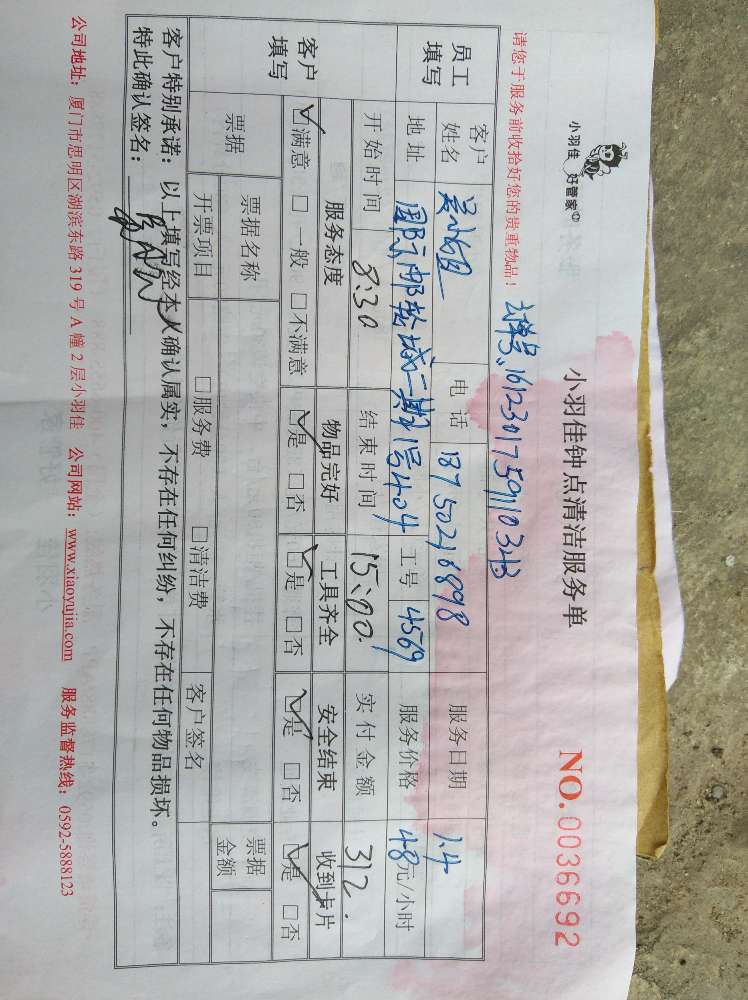 小羽佳 好管家
小羽佳钟点清洁服务单
NO.0036692
请您于服务前收拾好您的贵重物品!
1612301759110343
员工填写
客户姓名
电话 13750216898
服务日期 1.4
地址
二期21号404
工号 4569
服务价格 48元/小时
开始时间 8:30
结束时间 15:00.
实付金额 312.
客户填写
服务态度 物品完好 工具齐全 安全结束 收到卡片
☑满意 □一般 □不满意 ☑是 □否 ☑是 □否 ☑是 □否 ☑是 □否
票据
票据名称
票据金额
开票项目 □服务费 □清洁费
客户签名
客户特别承诺:以上填写经本人确认属实,不存在任何纠纷,不存在任何物品损坏。
特此确认签名:
公司地址:厦门市思明区湖滨东路 319 号 A 幢 2 层小羽佳 公司网站:www.xiaoyujia.com 服务监督热线:0592-5888123